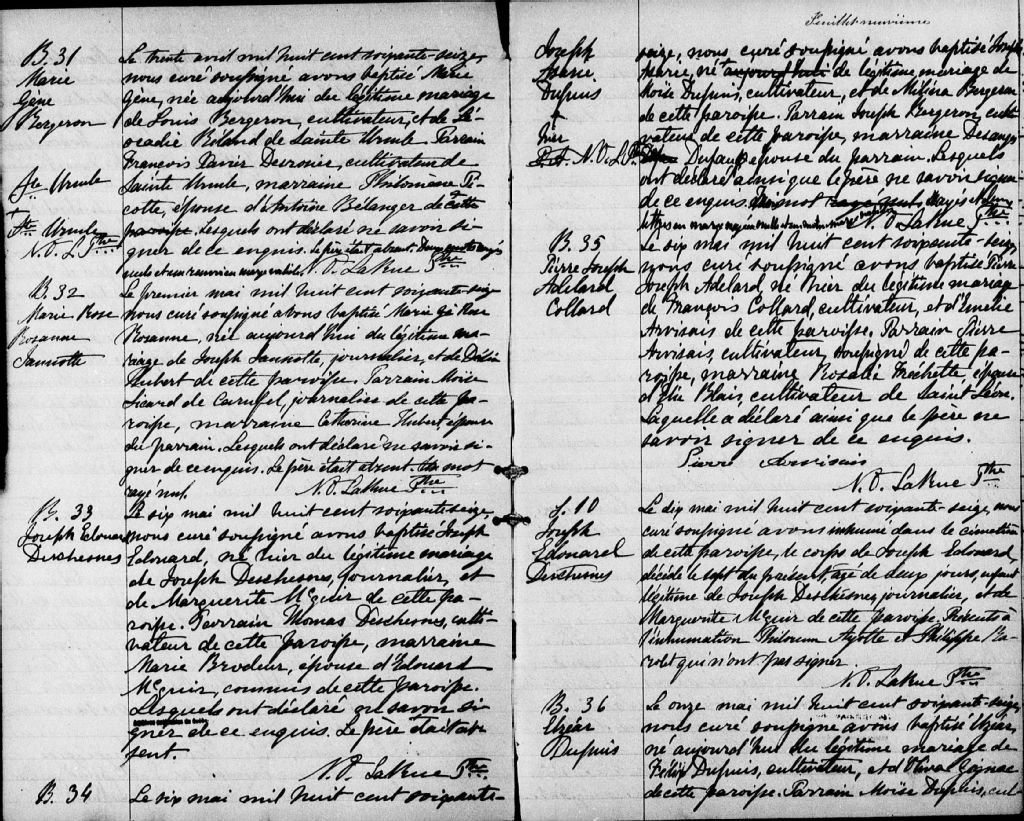 Feuillet neuvième
B. 31
Marie
Gène
Bergeron
Ste Ursule
+
Ste Ursule
N. O. L. Ptre
Le trente avril mil huit cent soixante-seize,
nous curé soussigné avons baptisé Marie
Gène, née aujourd'hui du légitime mariage
de Louis Bergeron, cultivateur, et de Lé-
ocadie Béland de Sainte Ursule Parrain
François Xavier Desrosier, cultivateur de
Sainte Ursule, marraine Philomène Pi-
cotte, épouse d'Antoine Bélanger de cette
paroisse. Lesquels ont déclaré ne savoir si-
gner de ce enquis. Le père était absent.
N. O. LaRue Ptre
B. 32
Marie Rose
Rosanne
Jannotte
Le premier mai mil huit cent soixante-seize
nous curé soussigné avons baptisé Marie Rose
Rosanne, née aujourd'hui du légitime ma-
riage de Joseph Jannotte, journalier, et de
Hubert de cette paroisse. Parrain Moïse
Sicard de Carufel, journalier de cette pa-
roisse, marraine Catherine Hubert épouse
du parrain. Lesquels ont déclaré ne savoir si-
gner de ce enquis. Le père était absent. Un mot
rayé nul. N. O. LaRue Ptre
B. 33
Joseph Edouard
Deschesnes
Le six mai mil huit cent soixante-seize,
nous curé soussigné avons baptisé Joseph
Edouard, né hier du légitime mariage
de Joseph Deschesnes, journalier, et
de Marguerite McGuir de cette pa-
roisse. Parrain Thomas Deschesnes, culti-
vateur de cette paroisse, marraine
Marie Brodeur, épouse d'Edouard
McGuir, commis de cette paroisse.
Lesquels ont déclaré ne savoir si-
gner de ce enquis. Le père était ab-
sent.
N. O. LaRue Ptre
B. 34
Le six mai mil huit cent soixante-
Joseph
Marie
Dupuis
+
N. O. L. Ptre
seize, nous curé soussigné avons baptisé Joseph
Marie, né aujourd'hui de légitime mariage de
Moïse Dupuis, cultivateur, et de Mélina Bergeron
de cette paroisse. Parrain Joseph Bergeron, culti-
vateur de cette paroisse, marraine Desanges
Dupuis épouse du parrain. Lesquels
ont déclaré ainsi que le père ne savoir signer
de ce enquis.
N. O. LaRue Ptre
B. 35
Pierre Joseph
Adelard
Collard
Le six mai mil huit cent soixante-seize,
nous curé soussigné avons baptisé Pierre
Joseph Adelard, né hier du légitime mariage
de François Collard, cultivateur, et d'Emélie
Arvisais de cette paroisse. Parrain Pierre
Arvisais, cultivateur, soussigné de cette pa-
roisse, marraine Rosalie Frechette épouse
d' Blais, cultivateur de Saint Léon.
Laquelle a déclaré ainsi que le père ne
savoir signer de ce enquis.
Pierre Arvisais
N. O. LaRue Ptre
S. 10
Joseph
Edouard
Deschesnes
Le dix mai mil huit cent soixante-seize, nous
curé soussigné avons inhumé dans le cimetière
de cette paroisse, le corps de Joseph Edouard,
décédé le sept du présent, agé de deux jours, enfant
légitime de Joseph Deschesnes, journalier, et de
Marguerite McGuir de cette paroisse. Présents à
l'inhumation Philorum Ayotte et Philippe Ba-
qui n'ont pas signer.
N. O. LaRue Ptre
B. 36
Elzéar
Dupuis
Le onze mai mil huit cent soixante-seize,
nous curé soussigné avons baptisé Elzéar,
né aujourd'hui du légitime mariage de
Dupuis, cultivateur, et d'Olival Gagnac
de cette paroisse. Parrain Moïse Dupuis, cul-